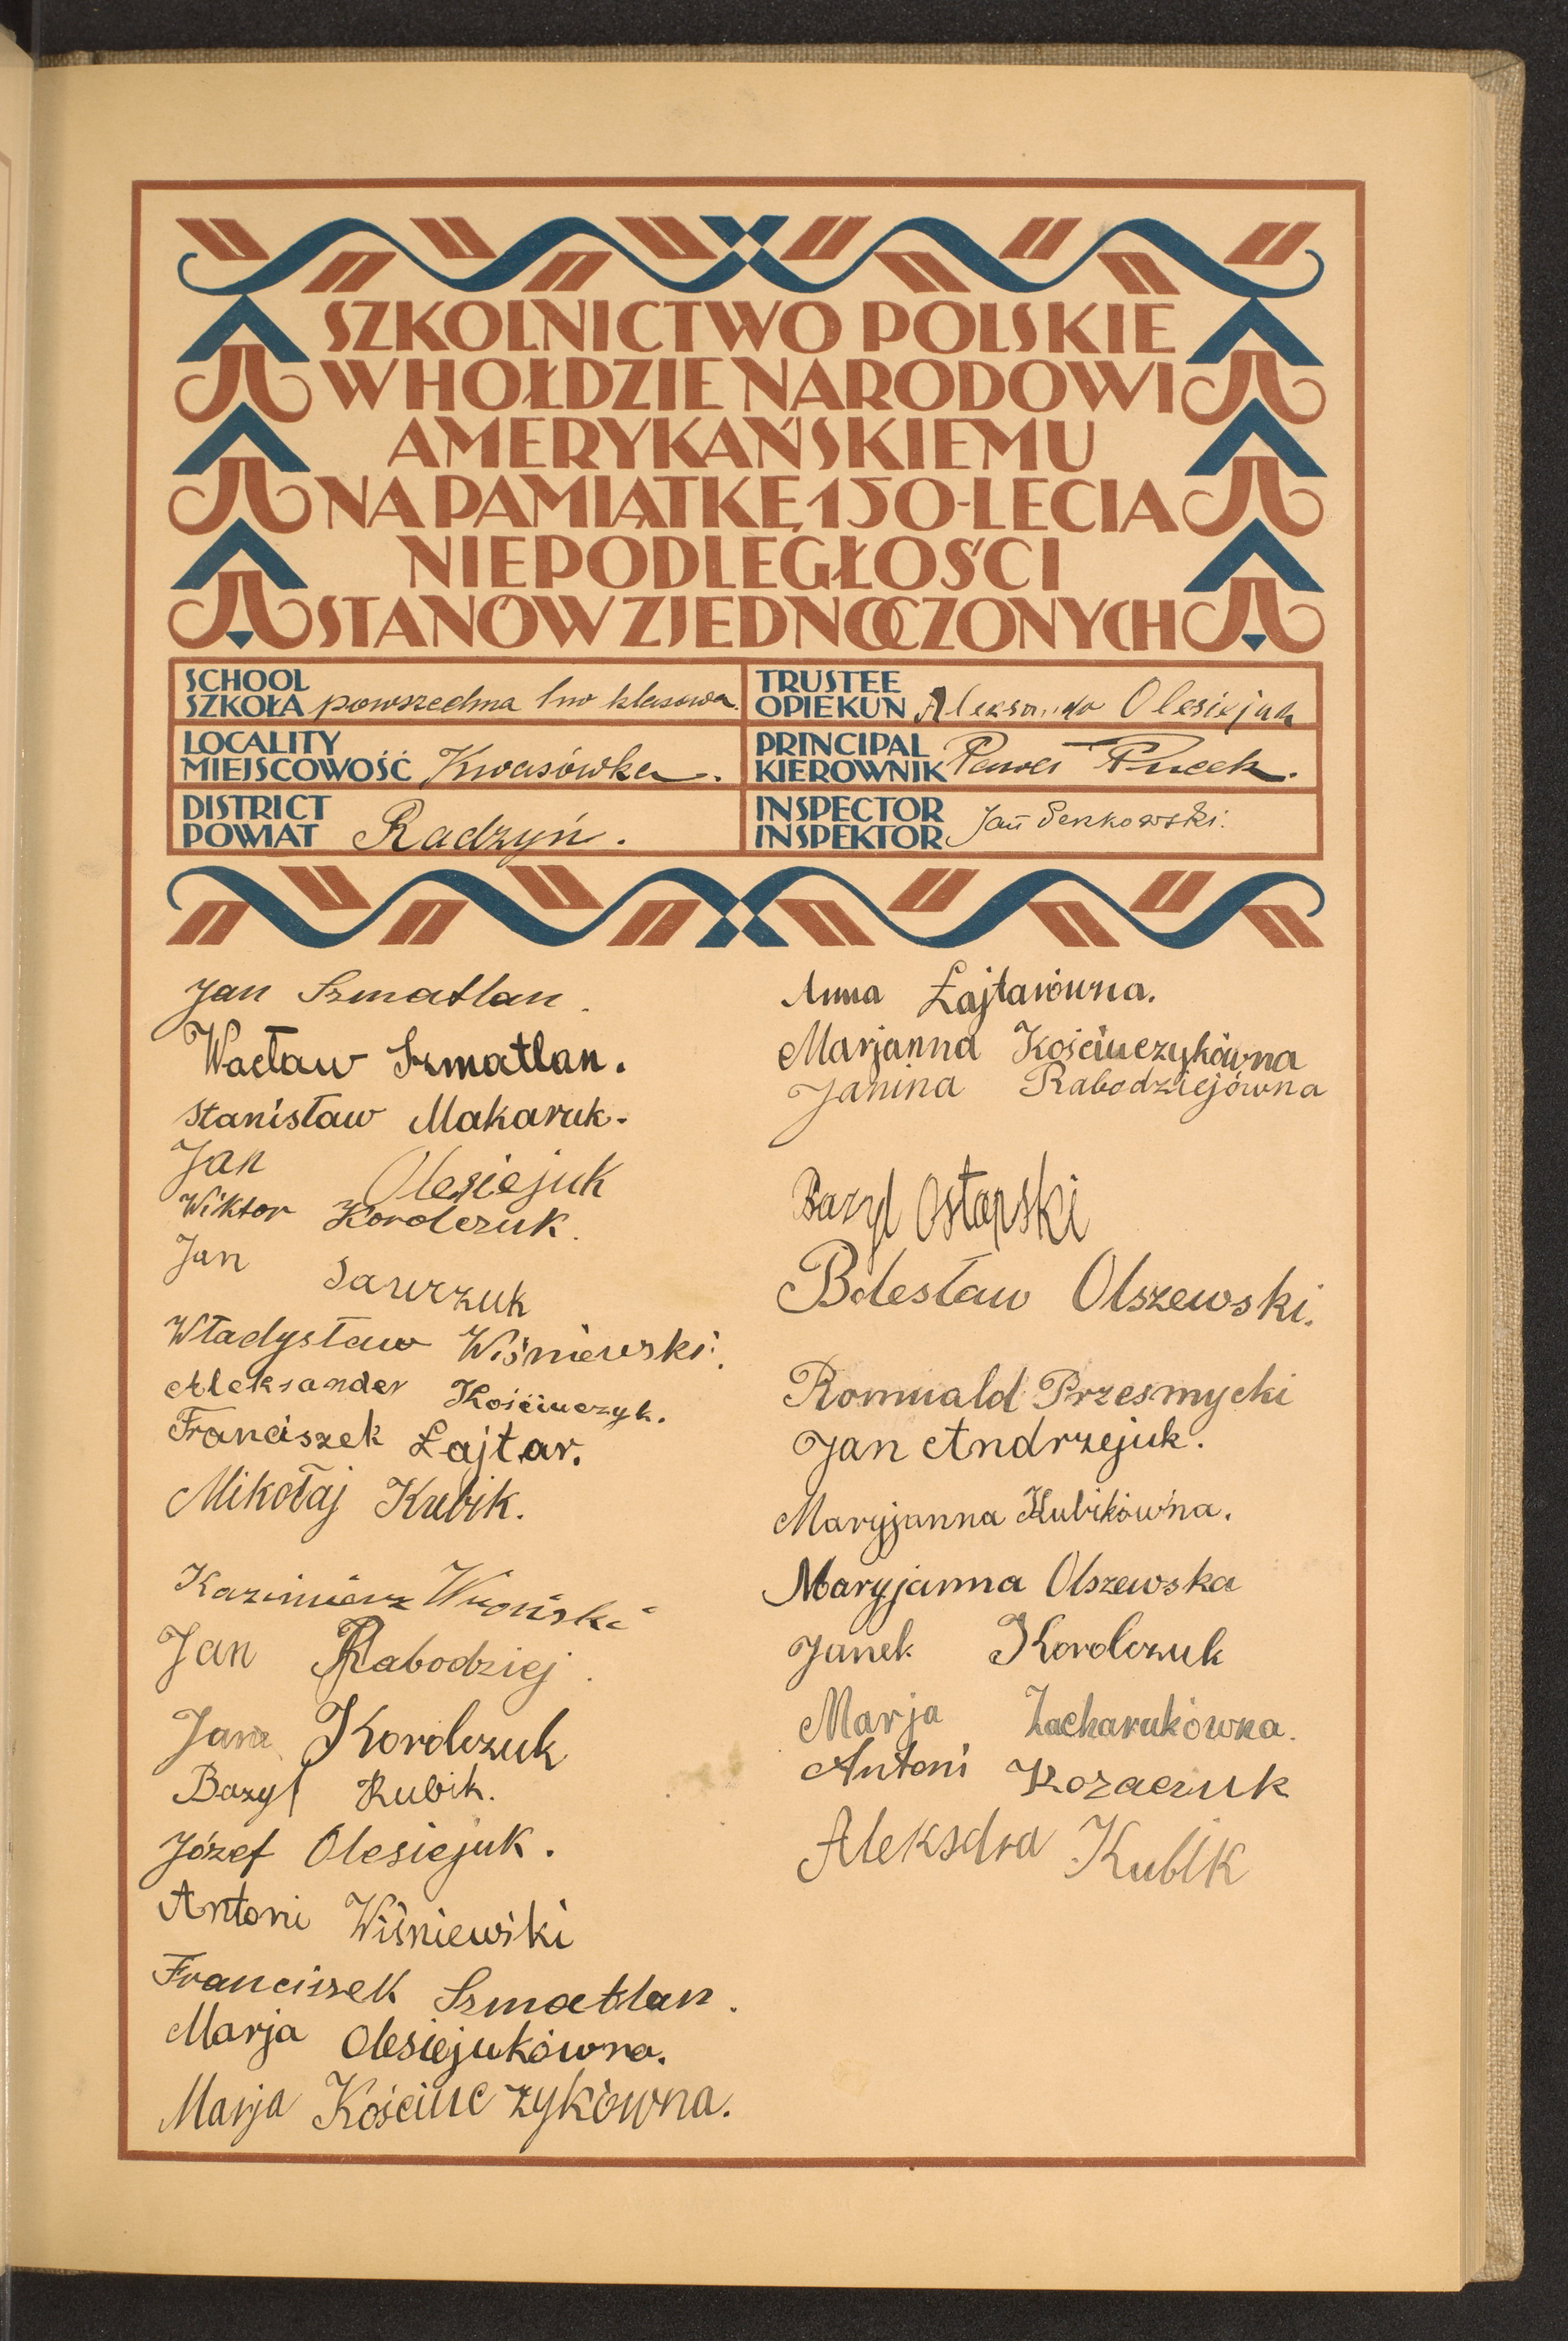 SZKOLNICTWO POLSKIE
W HOŁDZIE NARODOWI
AMERYKAŃSKIEMU
NA PAMIĄTKĘ 150-LECIA
NIEPODLEGŁOŚCI
STANÓW ZJEDNOCZONYCH
SCHOOL
SZKOŁA powszechna 1no klasowa.
TRUSTEE
OPIEKUN Olesiejuk
LOCALITY
MIEJSCOWOŚĆ Kwasówka.
PRINCIPAL
KIEROWNIK Paweł
DISTRICT
POWIAT Radzyń.
INSPECTOR
INSPEKTOR Jan Senkowski.
Jan Szmatlan.
Wacław Szmatlan.
Stanisław Makaruk.
Jan Olesiejuk
Wiktor Korolczuk.
Jan Sawczuk
Władysław Wiśniewski.
Aleksander Kościuczyk.
Franciszek Łajtar.
Mikołaj Kubik.
Kazimierz Wroński
Jan Rabodziej.
Jan Korolczuk
Bazyl Kubik.
Józef Olesiejuk.
Antoni Wiśniewski
Franciszek Szmatlan.
Marja Olesiejukówna.
Marja Kościuczykówna.
Anna Łajtarówna.
Marjanna Kościuczykówna
Janina Rabodziejówna
Bazyl Ostapski
Bolesław Olszewski.
Romuald Przesmycki
Jan Andrzejuk.
Maryjanna Kubikówna.
Maryjanna Olszewska
Janek Korolczuk
Marja Zacharukówna.
Antoni Kozaczuk
Aleksdra Kubik